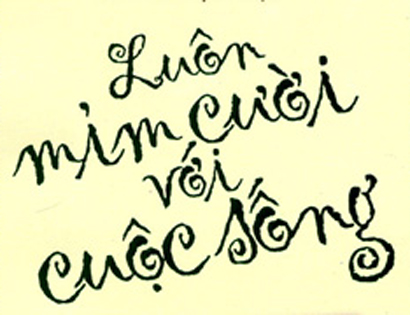 Luôn
mỉm cười
với
cuộc sống